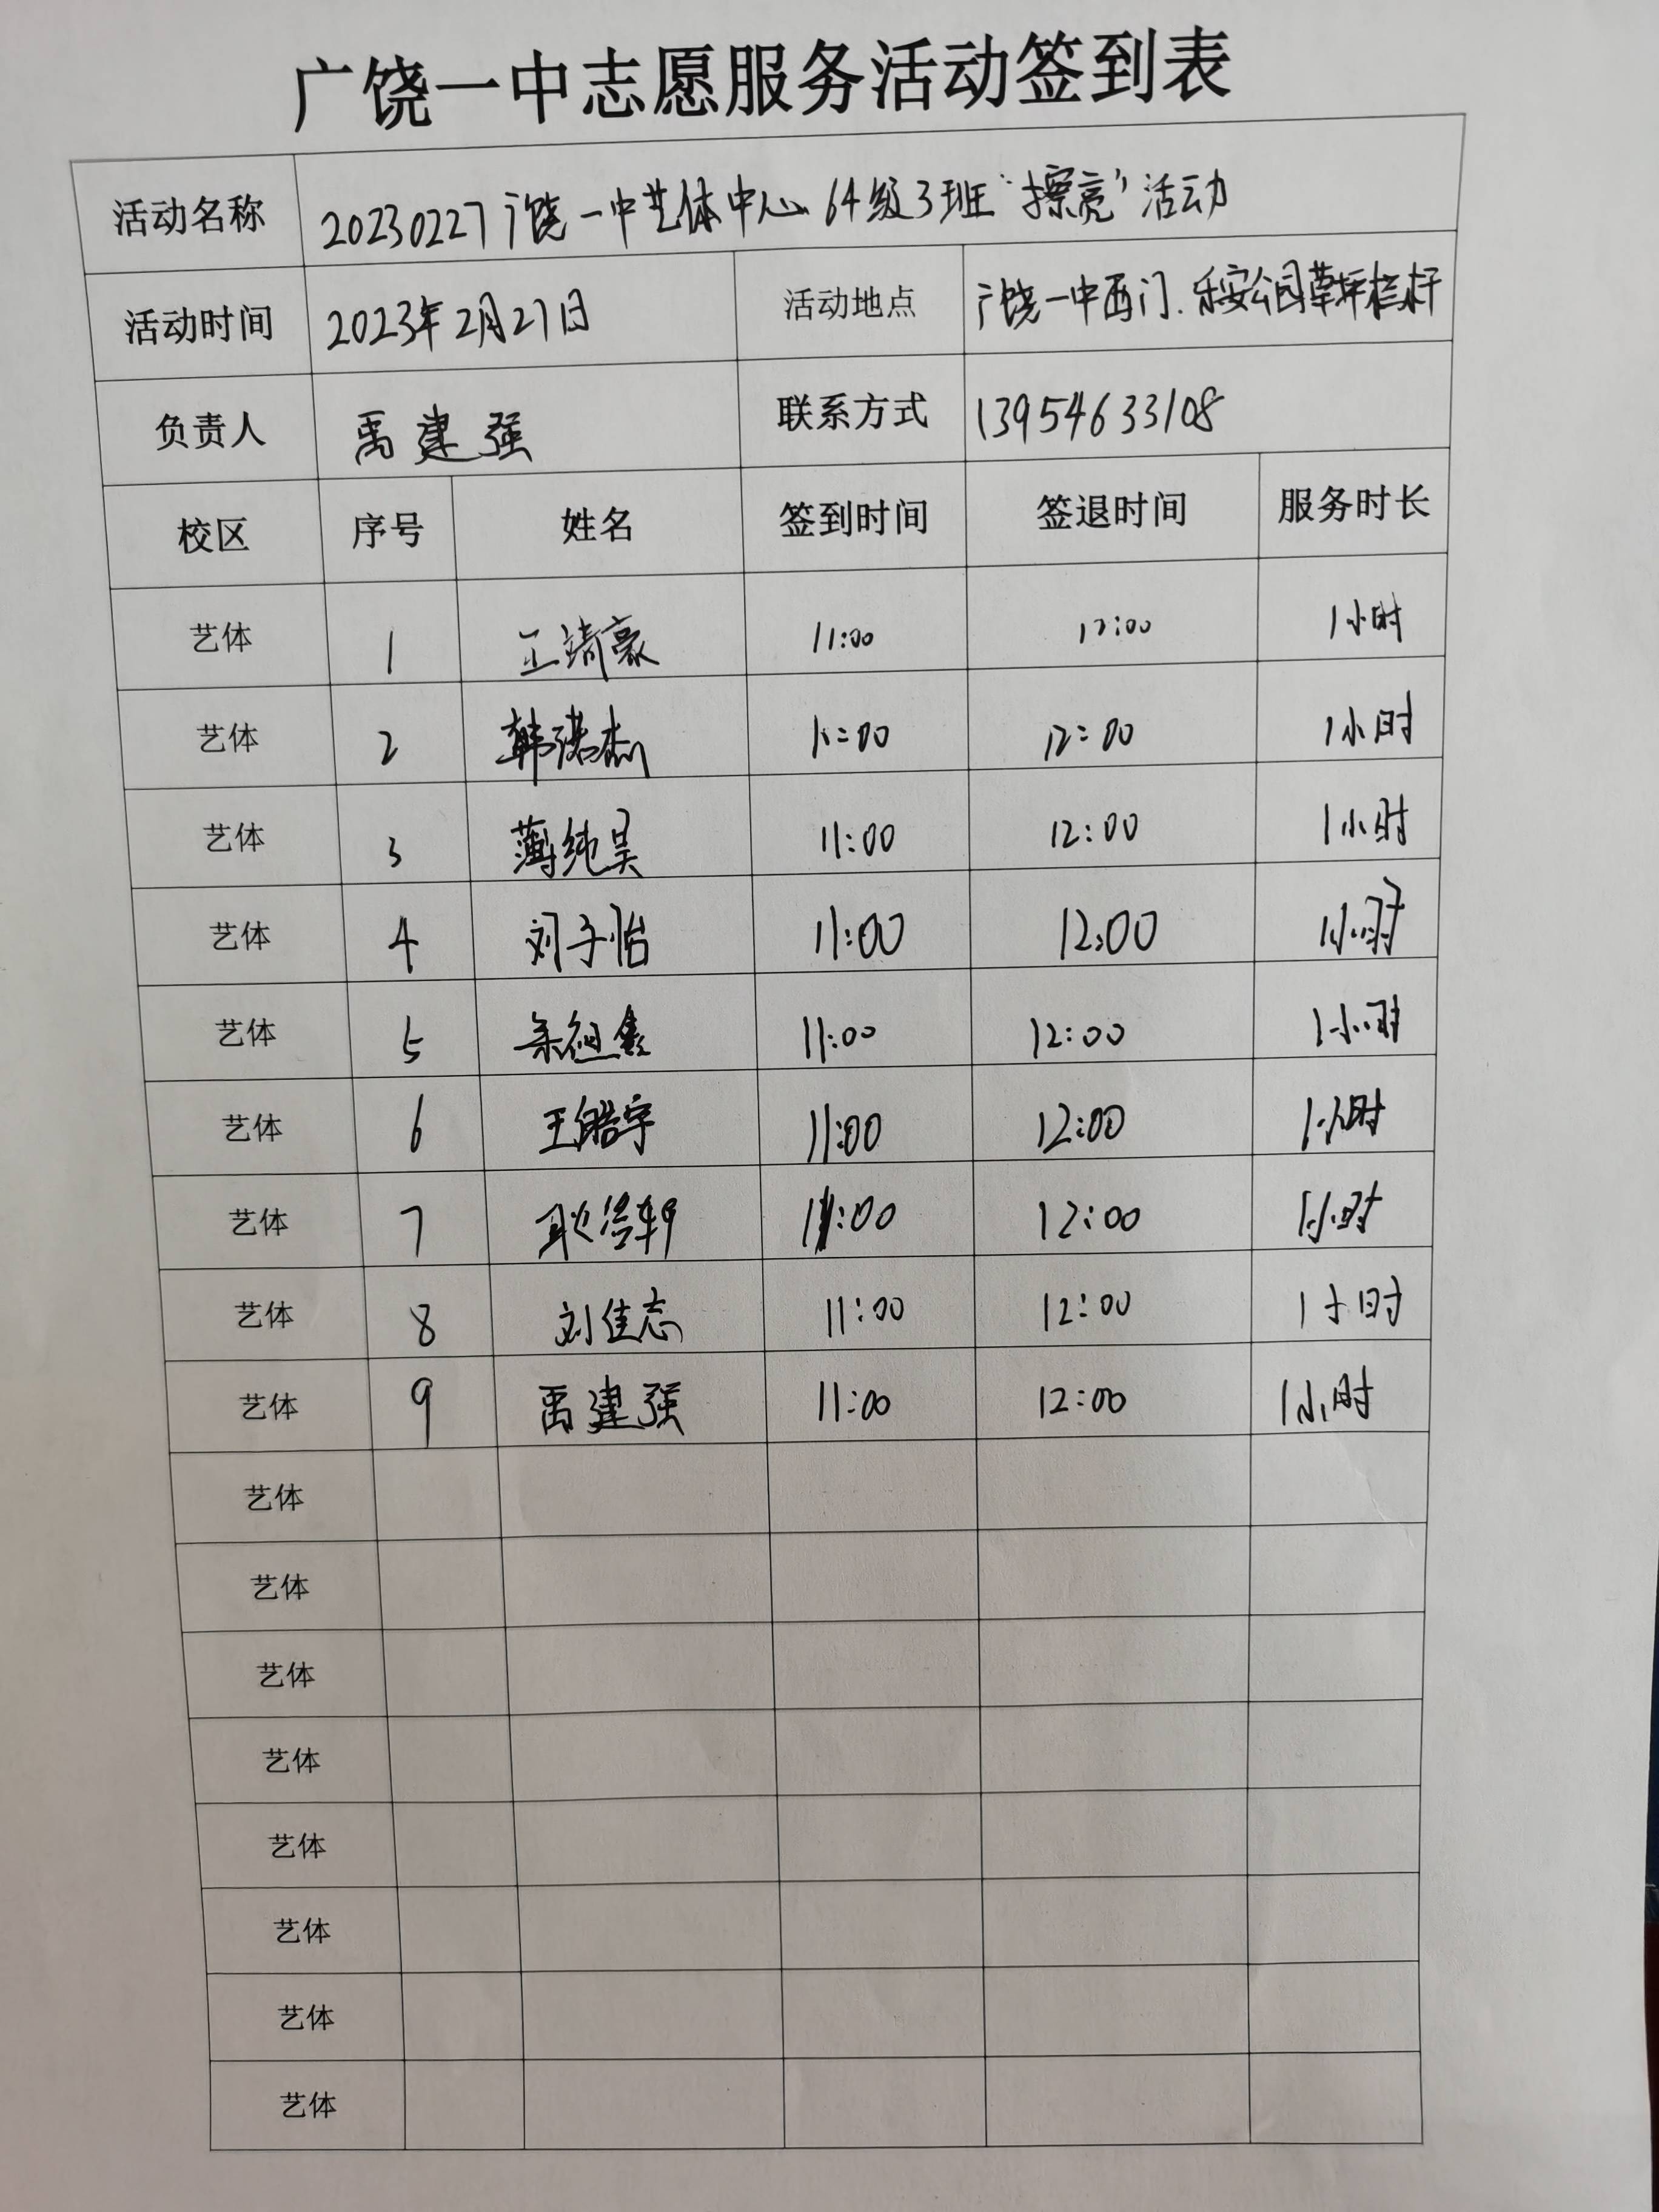 广饶一中志愿服务活动签到表
活动名称 20230227广饶一中艺体中心64级3班“擦亮”活动
活动时间 2023年2月27日 活动地点 广饶一中西门.乐安公园草坪栏杆
负责人 禹建强 联系方式 13954633108
校区 序号 姓名 签到时间 签退时间 服务时长
艺体 1 王靖豪 11:00 12:00 1小时
艺体 2 韩 杰 11:00 12:00 1小时
艺体 3 薄纯昊 11:00 12:00 1小时
艺体 4 刘子怡 11:00 12:00 1小时
艺体 5 11:00 12:00 1小时
艺体 6 王皓宇 11:00 12:00 1小时
艺体 7 耿 轩 11:00 12:00 1小时
艺体 8 刘佳志 11:00 12:00 1小时
艺体 9 禹建强 11:00 12:00 1小时
艺体
艺体
艺体
艺体
艺体
艺体
艺体
艺体